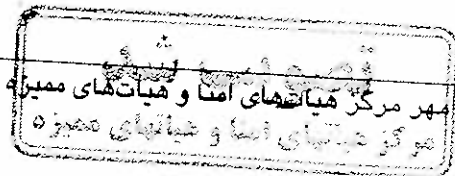 تصویب شد
مهر مرکز هیأت‌های امنا و هیأت‌های ممیزه
مرکز هیاتهای امنا و هیاتهای ممیزه